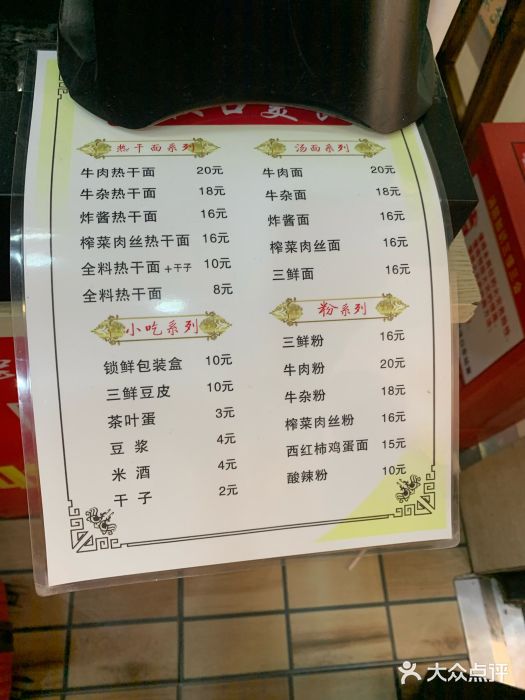 热干面系列
牛肉热干面 20元
牛杂热干面 18元
炸酱热干面 16元
榨菜肉丝热干面 16元
全料热干面+干子 10元
全料热干面 8元
小吃系列
锁鲜包装盒 10元
三鲜豆皮 10元
茶叶蛋 3元
豆浆 4元
米酒 4元
干子 2元
汤面系列
牛肉面 20元
牛杂面 18元
炸酱面 16元
榨菜肉丝面 16元
三鲜面 16元
粉系列
三鲜粉 16元
牛肉粉 20元
牛杂粉 18元
榨菜肉丝粉 16元
西红柿鸡蛋面 15元
酸辣粉 10元
大众点评